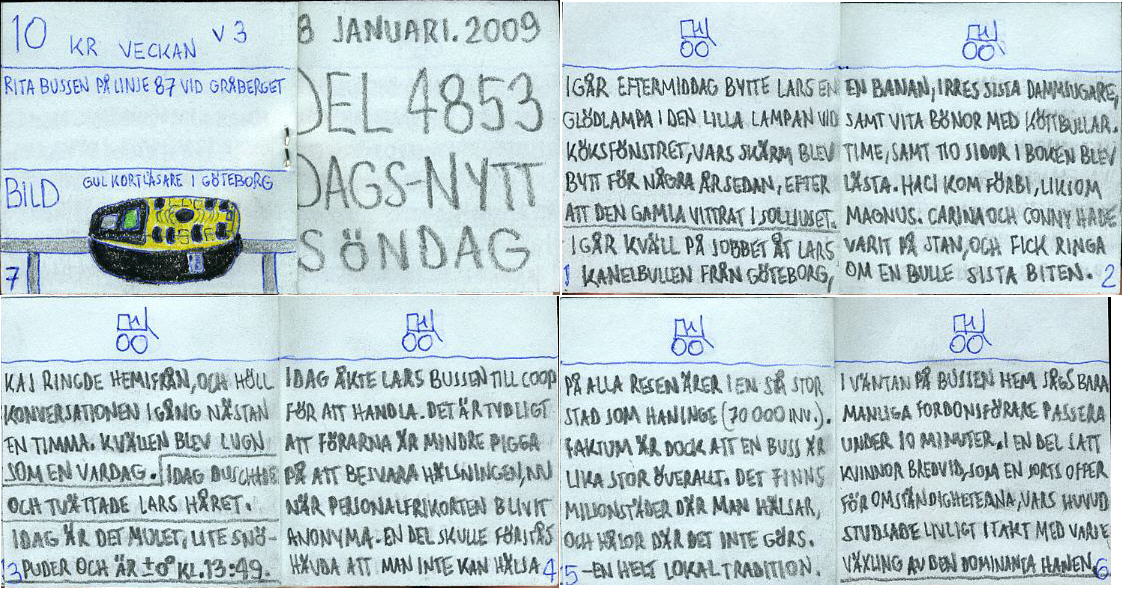 10 KR VECKAN V 3
RITA BUSSEN PÅ LINJE 87 VID GRÅBERGET
BILD GUL KORTLÄSARE I GÖTEBORG
7
8 JANUARI. 2009
DEL 4853
DAGS-NYTT
SÖNDAG
IGÅR EFTERMIDDAG BYTTE LARS EN
GLÖDLAMPA I DEN LILLA LAMPAN VID
KÖKSFÖNSTRET, VARS SKÄRM BLEV
BYTT FÖR NÅGRA ÅR SEDAN, EFTER
ATT DEN GAMLA VITTRAT I SOLLJUSET.
IGÅR KVÄLL PÅ JOBBET ÅT LARS
1 KANELBULLEN FRÅN GÖTEBORG,
EN BANAN, IRRES SISTA DAMMSUGARE,
SAMT VITA BÖNOR MED KÖTTBULLAR.
TIME, SAMT TIO SIDOR I BOKEN BLEV
LÄSTA. HACI KOM FÖRBI, LIKSOM
MAGNUS. CARINA OCH CONNY HADE
VARIT PÅ STAN, OCH FICK RINGA
OM EN BULLE SISTA BITEN. 2
KAJ RINGDE HEMIFRÅN, OCH HÖLL
KONVERSATIONEN IGÅNG NÄSTAN
EN TIMMA. KVÄLLEN BLEV LUGN
SOM EN VARDAG. IDAG DUSCHADE
OCH TVÄTTADE LARS HÅRET.
IDAG ÄR DET MULET, LITE SNÖ-
3 PUDER OCH ÄR ±0° KL. 13:49.
IDAG ÅKTE LARS BUSSEN TILL COOP
FÖR ATT HANDLA. DET ÄR TYDLIGT
ATT FÖRARNA ÄR MINDRE PIGGA
PÅ ATT BESVARA HÄLSNINGEN, NU
NÄR PERSONALFRIKORTEN BLIVIT
ANONYMA. EN DEL SKULLE FÖRSTÅS
HÄVDA ATT MAN INTE KAN HÄLSA 4
PÅ ALLA RESENÄRER I EN SÅ STOR
STAD SOM HANINGE (70 000 INV.).
FAKTUM ÄR DOCK ATT EN BUSS ÄR
LIKA STOR ÖVERALLT. DET FINNS
MILJONSTÄDER DÄR MAN HÄLSAR,
OCH HÅLOR DÄR DET INTE GÖRS.
5 -EN HELT LOKAL TRADITION.
I VÄNTAN PÅ BUSSEN HEM SÅGS BARA
MANLIGA FORDONSFÖRARE PASSERA
UNDER 10 MINUTER. I EN DEL SATT
KVINNOR BREDVID, SOM EN SORTS OFFER
FÖR OMSTÄNDIGHETERNA, VARS HUVUD
STUDSADE LIVLIGT I TAKT MED VARJE
VÄXLING AV DEN DOMINANTA HANEN. 6